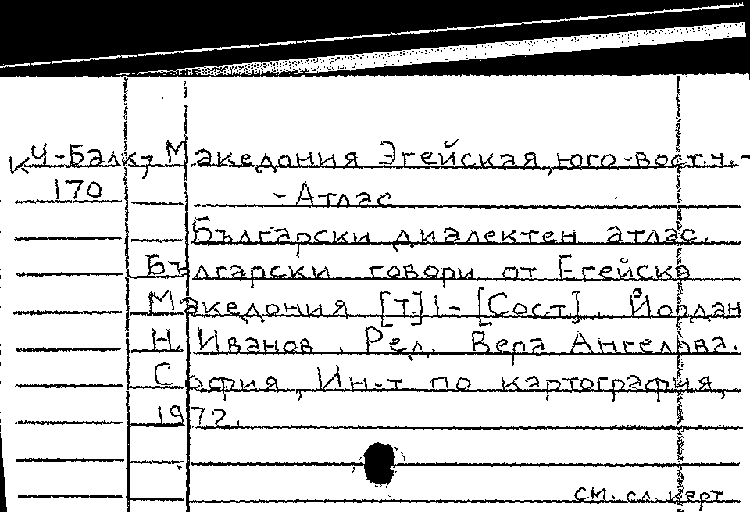 КЧ-Балк, Македония Эгейская, юго-вост.ч.-
170 -Атлас
Български диалектен атлас.
Български говори от Егейска
Македония [т.]1- [Сост]. Йордан
Н. Иванов. Ред. Вера Ангелова.
София, Ин-т по картография,
1972.
см. сл. карт